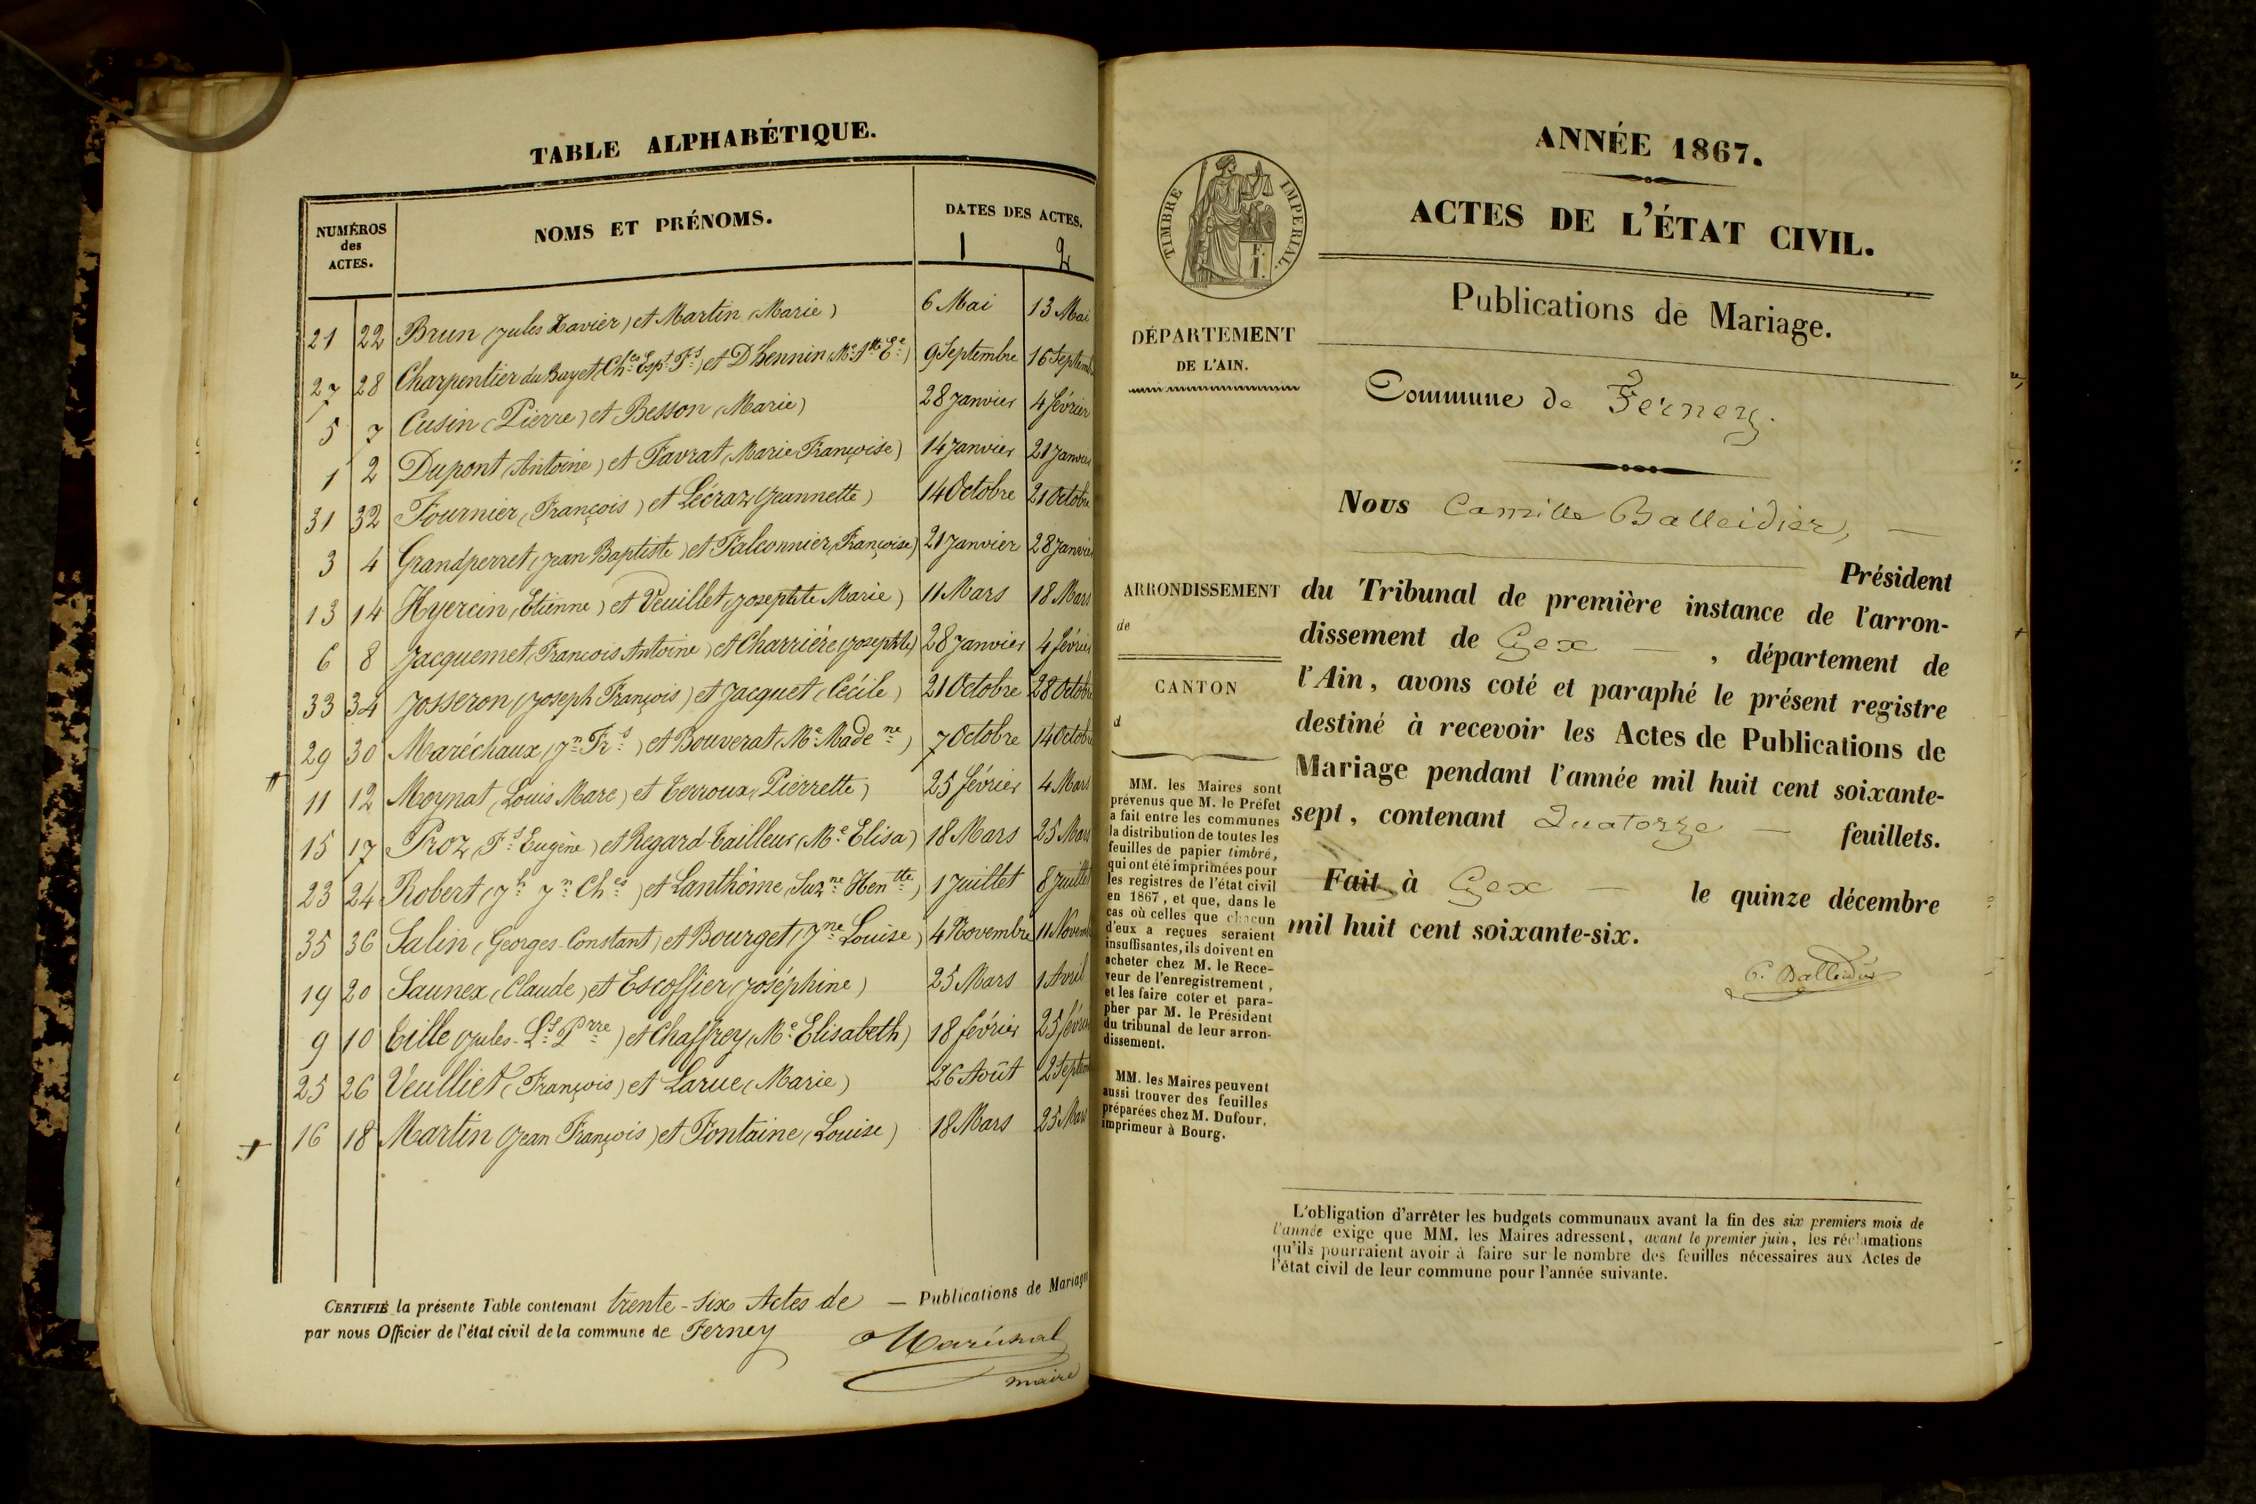 TABLE ALPHABÉTIQUE.
NUMÉROS des ACTES. NOMS ET PRÉNOMS. DATES DES ACTES.
1 2
21 22 Brun (Jules Xavier) et Martin (Marie) 6 Mai 13 Mai
27 28 Charpentier du Buyet (Ch.es Esp.t F.s) et D'hennin (M.e A.tte E.e) 9 Septembre 16 Septemb
5 7 Cusin (Pierre) et Besson (Marie) 28 Janvier 4 février
1 2 Dupont (Antoine) et Favrat (Marie Françoise) 14 Janvier 21 Janvier
31 32 Fournier (François) et Lécraz (Jeannette) 14 Octobre 21 Octobre
3 4 Grandperret (Jean Baptiste) et Falconnier (Françoise) 21 Janvier 28 Janvier
13 14 Hyercin (Etienne) et Veuillet (Josephte Marie) 11 Mars 18 Mars
6 8 Jacquemet (François Antoine) et Charrière (Josephte) 28 Janvier 4 février
33 34 Josseron (Joseph François) et Jacquet (Cécile) 21 Octobre 28 Octobre
29 30 Maréchaux (J.n Fr.s) et Bouverat (M.e Made.ne) 7 Octobre 14 Octobre
11 12 Moynat (Louis Marc) et Terroux (Pierrette) 25 février 4 Mars
15 17 Proz (F.s Eugène) et Regard-Tailleur (M.e Elisa) 18 Mars 25 Mars
23 24 Robert (J.h J.n Ch.es) et Lanthôme (Suz.ne Hen.tte) 1 Juillet 8 Juillet
35 36 Salin (Georges-Constant) et Bourget (J.ne Louise) 4 Novembre 11 Novemb
19 20 Saunex (Claude) et Escoffier (Joséphine) 25 Mars 1 Avril
9 10 Tille (Jules-L.s P.rre) et Chaffrey (M.e Elisabeth) 18 février 25 février
25 26 Veulliet (François) et Larue (Marie) 26 Août 2 Septem
16 18 Martin (Jean François) et Fontaine (Louise) 18 Mars 25 Mars
CERTIFIÉ la présente Table contenant trente-six Actes de — Publications de Mariages
par nous Officier de l'état civil de la commune de Ferney
Maréchal
maire
ANNÉE 1867.
ACTES DE L'ÉTAT CIVIL.
Publications de Mariage.
TIMBRE IMPERIAL.
F.
1.
DÉPARTEMENT
DE L'AIN.
ARRONDISSEMENT
de
CANTON
d
MM. les Maires sont
prévenus que M. le Préfet
a fait entre les communes
la distribution de toutes les
feuilles de papier timbré,
qui ont été imprimées pour
les registres de l'état civil
en 1867, et que, dans le
cas où celles que chacun
d'eux a reçues seraient
insuffisantes, ils doivent en
acheter chez M. le Rece-
veur de l'enregistrement,
et les faire coter et para-
pher par M. le Président
du tribunal de leur arron-
dissement.
MM. les Maires peuvent
aussi trouver des feuilles
préparées chez M. Dufour,
imprimeur à Bourg.
Commune de Ferney.
Nous Camille Balleidier, —
Président
du Tribunal de première instance de l'arron-
dissement de Gex — , département de
l'Ain, avons coté et paraphé le présent registre
destiné à recevoir les Actes de Publications de
Mariage pendant l'année mil huit cent soixante-
sept, contenant Quatorze — feuillets.
Fait à Gex — le quinze décembre
mil huit cent soixante-six.
C. Balleidier
L'obligation d'arrêter les budgets communaux avant la fin des six premiers mois de
l'année exige que MM. les Maires adressent, avant le premier juin, les réclamations
qu'ils pourraient avoir à faire sur le nombre des feuilles nécessaires aux Actes de
l'état civil de leur commune pour l'année suivante.